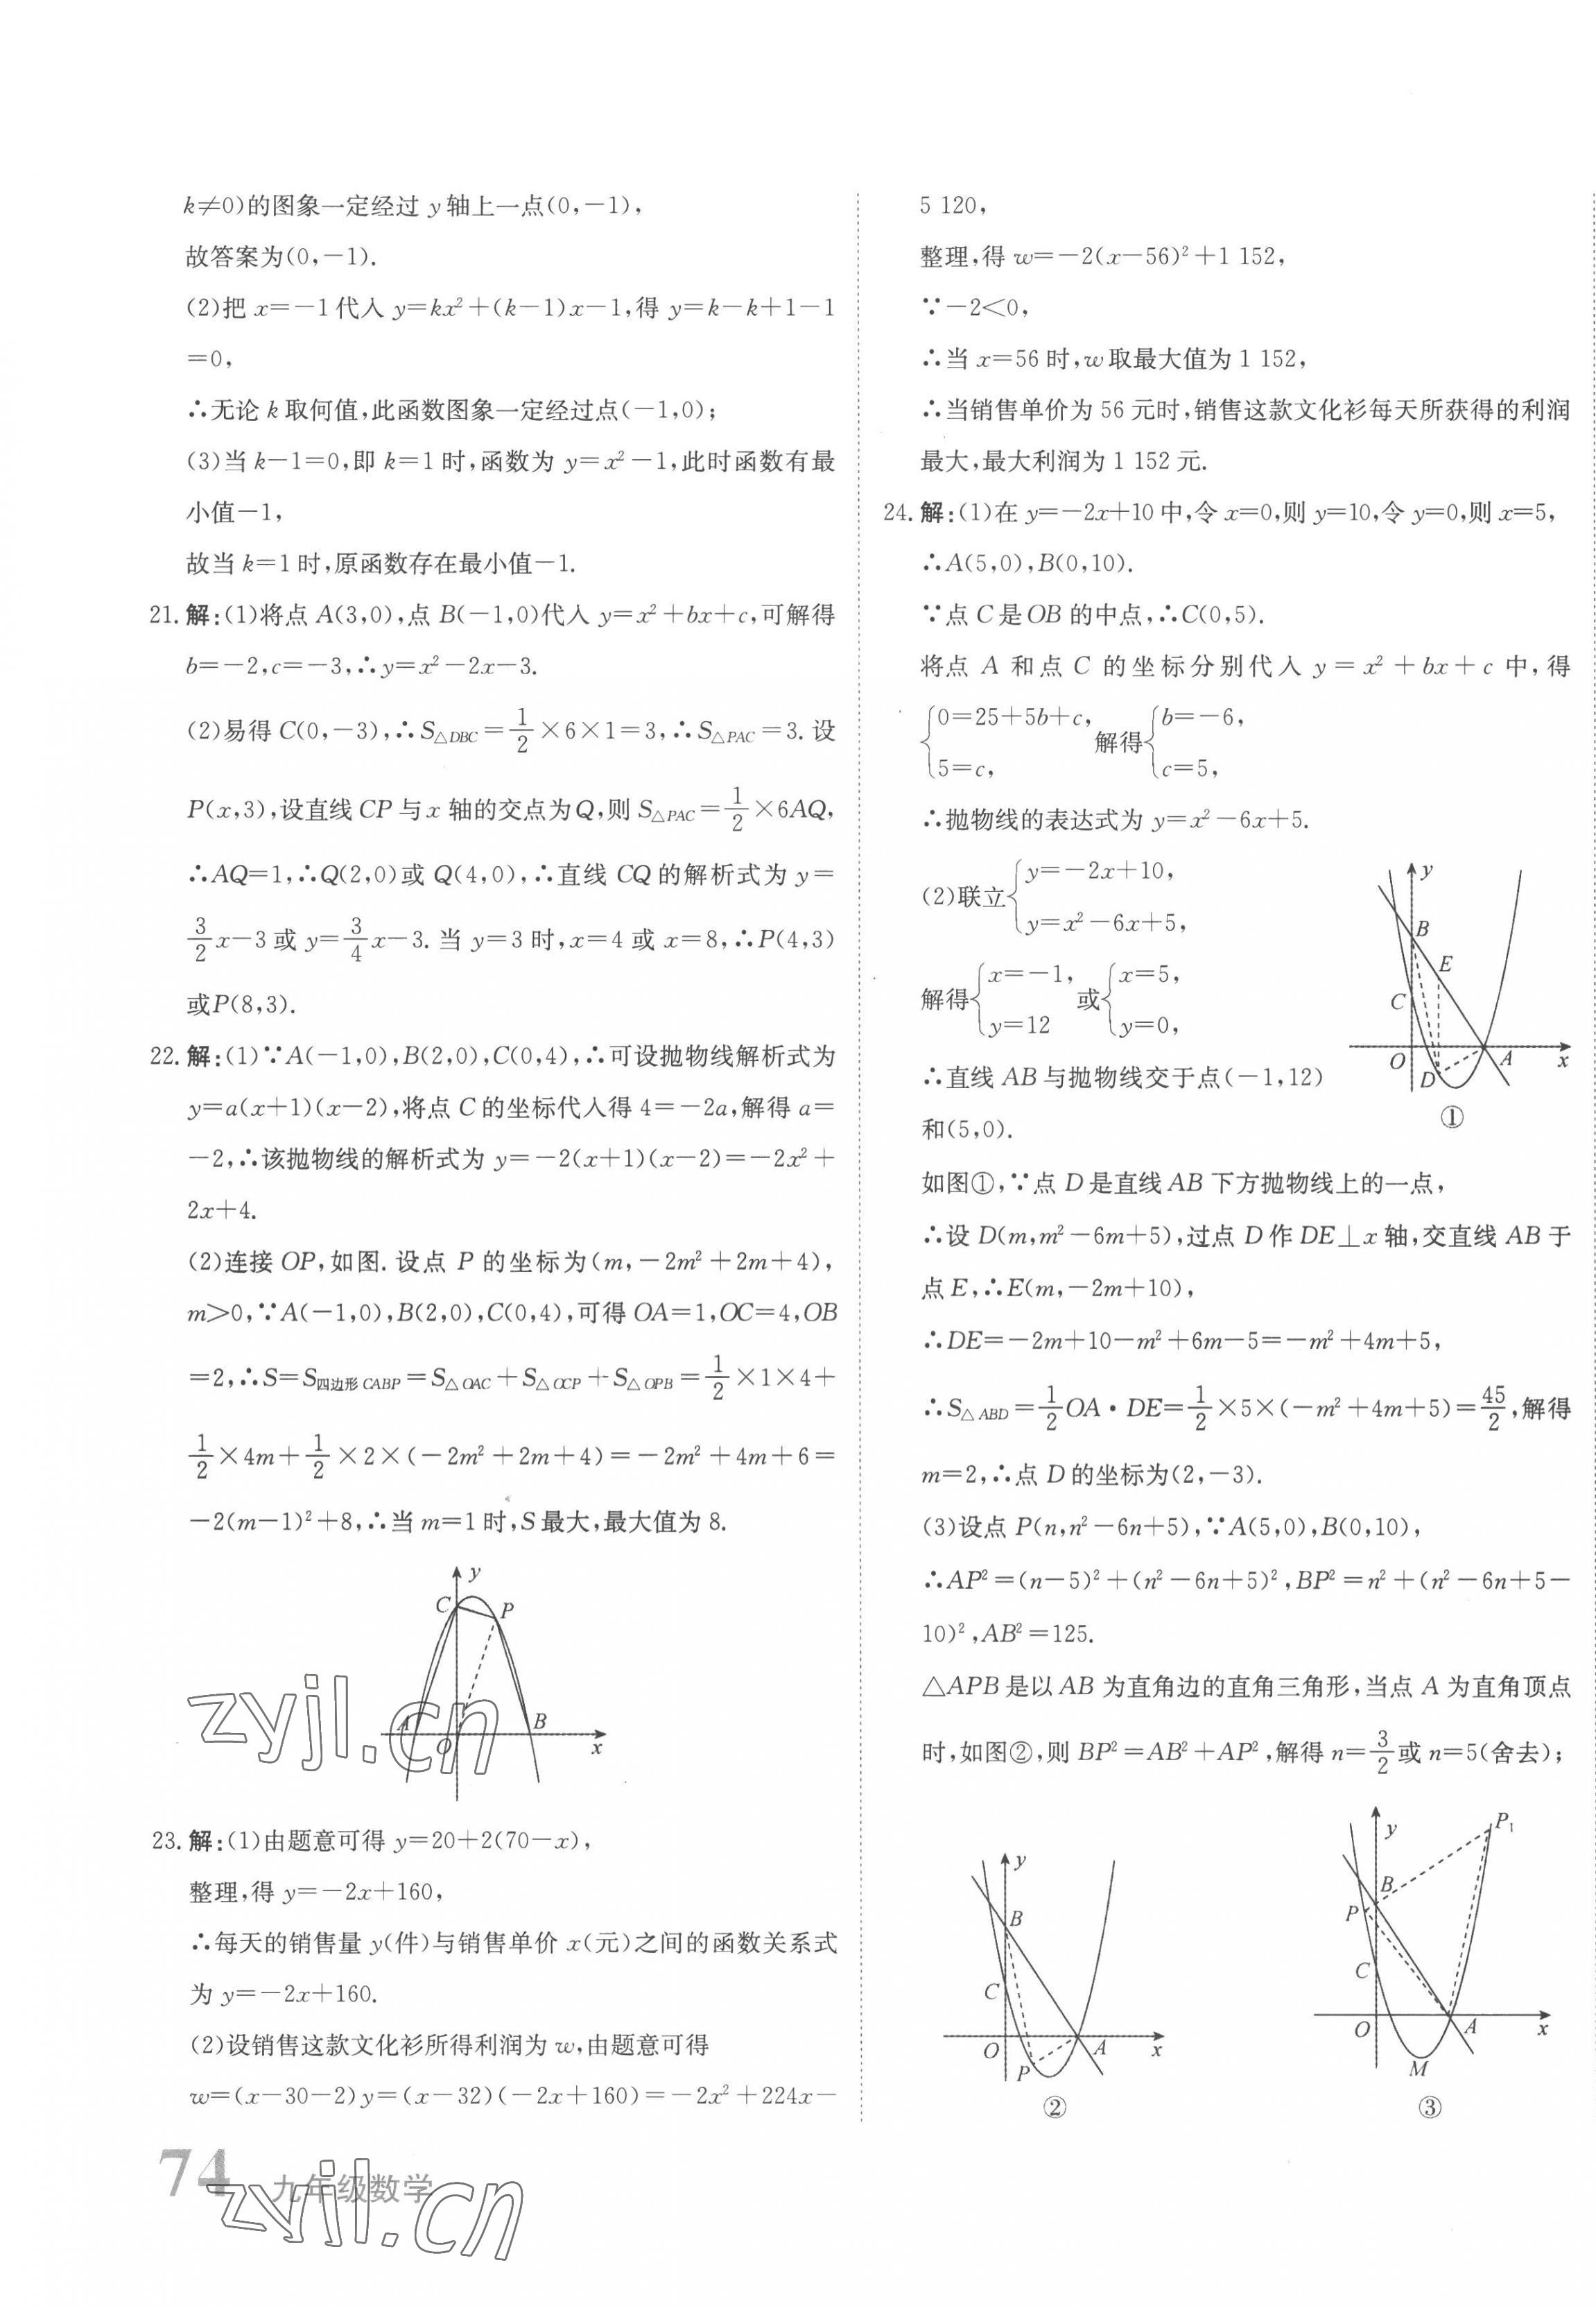 k≠0)的图象一定经过 y 轴上一点(0,-1),
故答案为(0,-1).
(2)把 x=-1 代入 y=kx²+(k-1)x-1,得 y=k-k+1-1
=0,
∴无论 k 取何值,此函数图象一定经过点(-1,0);
(3)当 k-1=0,即 k=1 时,函数为 y=x²-1,此时函数有最
小值-1,
故当 k=1 时,原函数存在最小值-1.
21. 解:(1)将点 A(3,0),点 B(-1,0)代入 y=x²+bx+c,可解得
b=-2,c=-3,∴y=x²-2x-3.
(2)易得 C(0,-3),∴S△DBC=1/2×6×1=3,∴S△PAC=3. 设
P(x,3),设直线 CP 与 x 轴的交点为 Q,则 S△PAC=1/2×6AQ,
∴AQ=1,∴Q(2,0)或 Q(4,0),∴直线 CQ 的解析式为 y=
3/2x-3 或 y=3/4x-3. 当 y=3 时,x=4 或 x=8,∴P(4,3)
或P(8,3).
22. 解:(1)∵A(-1,0),B(2,0),C(0,4),∴可设抛物线解析式为
y=a(x+1)(x-2),将点 C 的坐标代入得 4=-2a,解得 a=
-2,∴该抛物线的解析式为 y=-2(x+1)(x-2)=-2x²+
2x+4.
(2)连接 OP,如图. 设点 P 的坐标为(m,-2m²+2m+4),
m>0,∵A(-1,0),B(2,0),C(0,4),可得 OA=1,OC=4,OB
=2,∴S=S四边形CABP=S△OAC+S△OCP+S△OPB=1/2×1×4+
1/2×4m+1/2×2×(-2m²+2m+4)=-2m²+4m+6=
-2(m-1)²+8,∴当 m=1 时,S 最大,最大值为 8.
y
C
P
A
O
B
x
zyjl.cn
23. 解:(1)由题意可得 y=20+2(70-x),
整理,得 y=-2x+160,
∴每天的销售量 y(件)与销售单价 x(元)之间的函数关系式
为 y=-2x+160.
(2)设销售这款文化衫所得利润为 w,由题意可得
w=(x-30-2)y=(x-32)(-2x+160)=-2x²+224x-
74 九年级数学
zyjl.cn
5 120,
整理,得 w=-2(x-56)²+1 152,
∵-2<0,
∴当 x=56 时,w 取最大值为 1 152,
∴当销售单价为 56 元时,销售这款文化衫每天所获得的利润
最大,最大利润为 1 152 元.
24. 解:(1)在 y=-2x+10 中,令 x=0,则 y=10,令 y=0,则 x=5,
∴A(5,0),B(0,10).
∵点 C 是 OB 的中点,∴C(0,5).
将点 A 和点 C 的坐标分别代入 y=x²+bx+c 中,得
{0=25+5b+c, 5=c, 解得{b=-6, c=5,
∴抛物线的表达式为 y=x²-6x+5.
(2)联立{y=-2x+10, y=x²-6x+5,
解得{x=-1, y=12 或{x=5, y=0,
∴直线 AB 与抛物线交于点(-1,12)
和(5,0).
y
B
E
C
O
D
A
x
①
如图①,∵点 D 是直线 AB 下方抛物线上的一点,
∴设 D(m,m²-6m+5),过点 D 作 DE⊥x 轴,交直线 AB 于
点 E,∴E(m,-2m+10),
∴DE=-2m+10-m²+6m-5=-m²+4m+5,
∴S△ABD=1/2OA·DE=1/2×5×(-m²+4m+5)=45/2,解得
m=2,∴点 D 的坐标为(2,-3).
(3)设点 P(n,n²-6n+5),∵A(5,0),B(0,10),
∴AP²=(n-5)²+(n²-6n+5)²,BP²=n²+(n²-6n+5-
10)²,AB²=125.
△APB 是以 AB 为直角边的直角三角形,当点 A 为直角顶点
时,如图②,则 BP²=AB²+AP²,解得 n=3/2或 n=5(舍去);
y
B
C
O
P
A
x
②
y
P₁
B
P
C
O
A
x
M
③